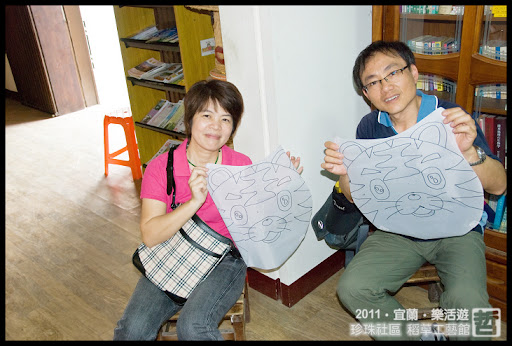 2011・宜蘭・樂活遊
珍珠社區 稻草工藝館
哲